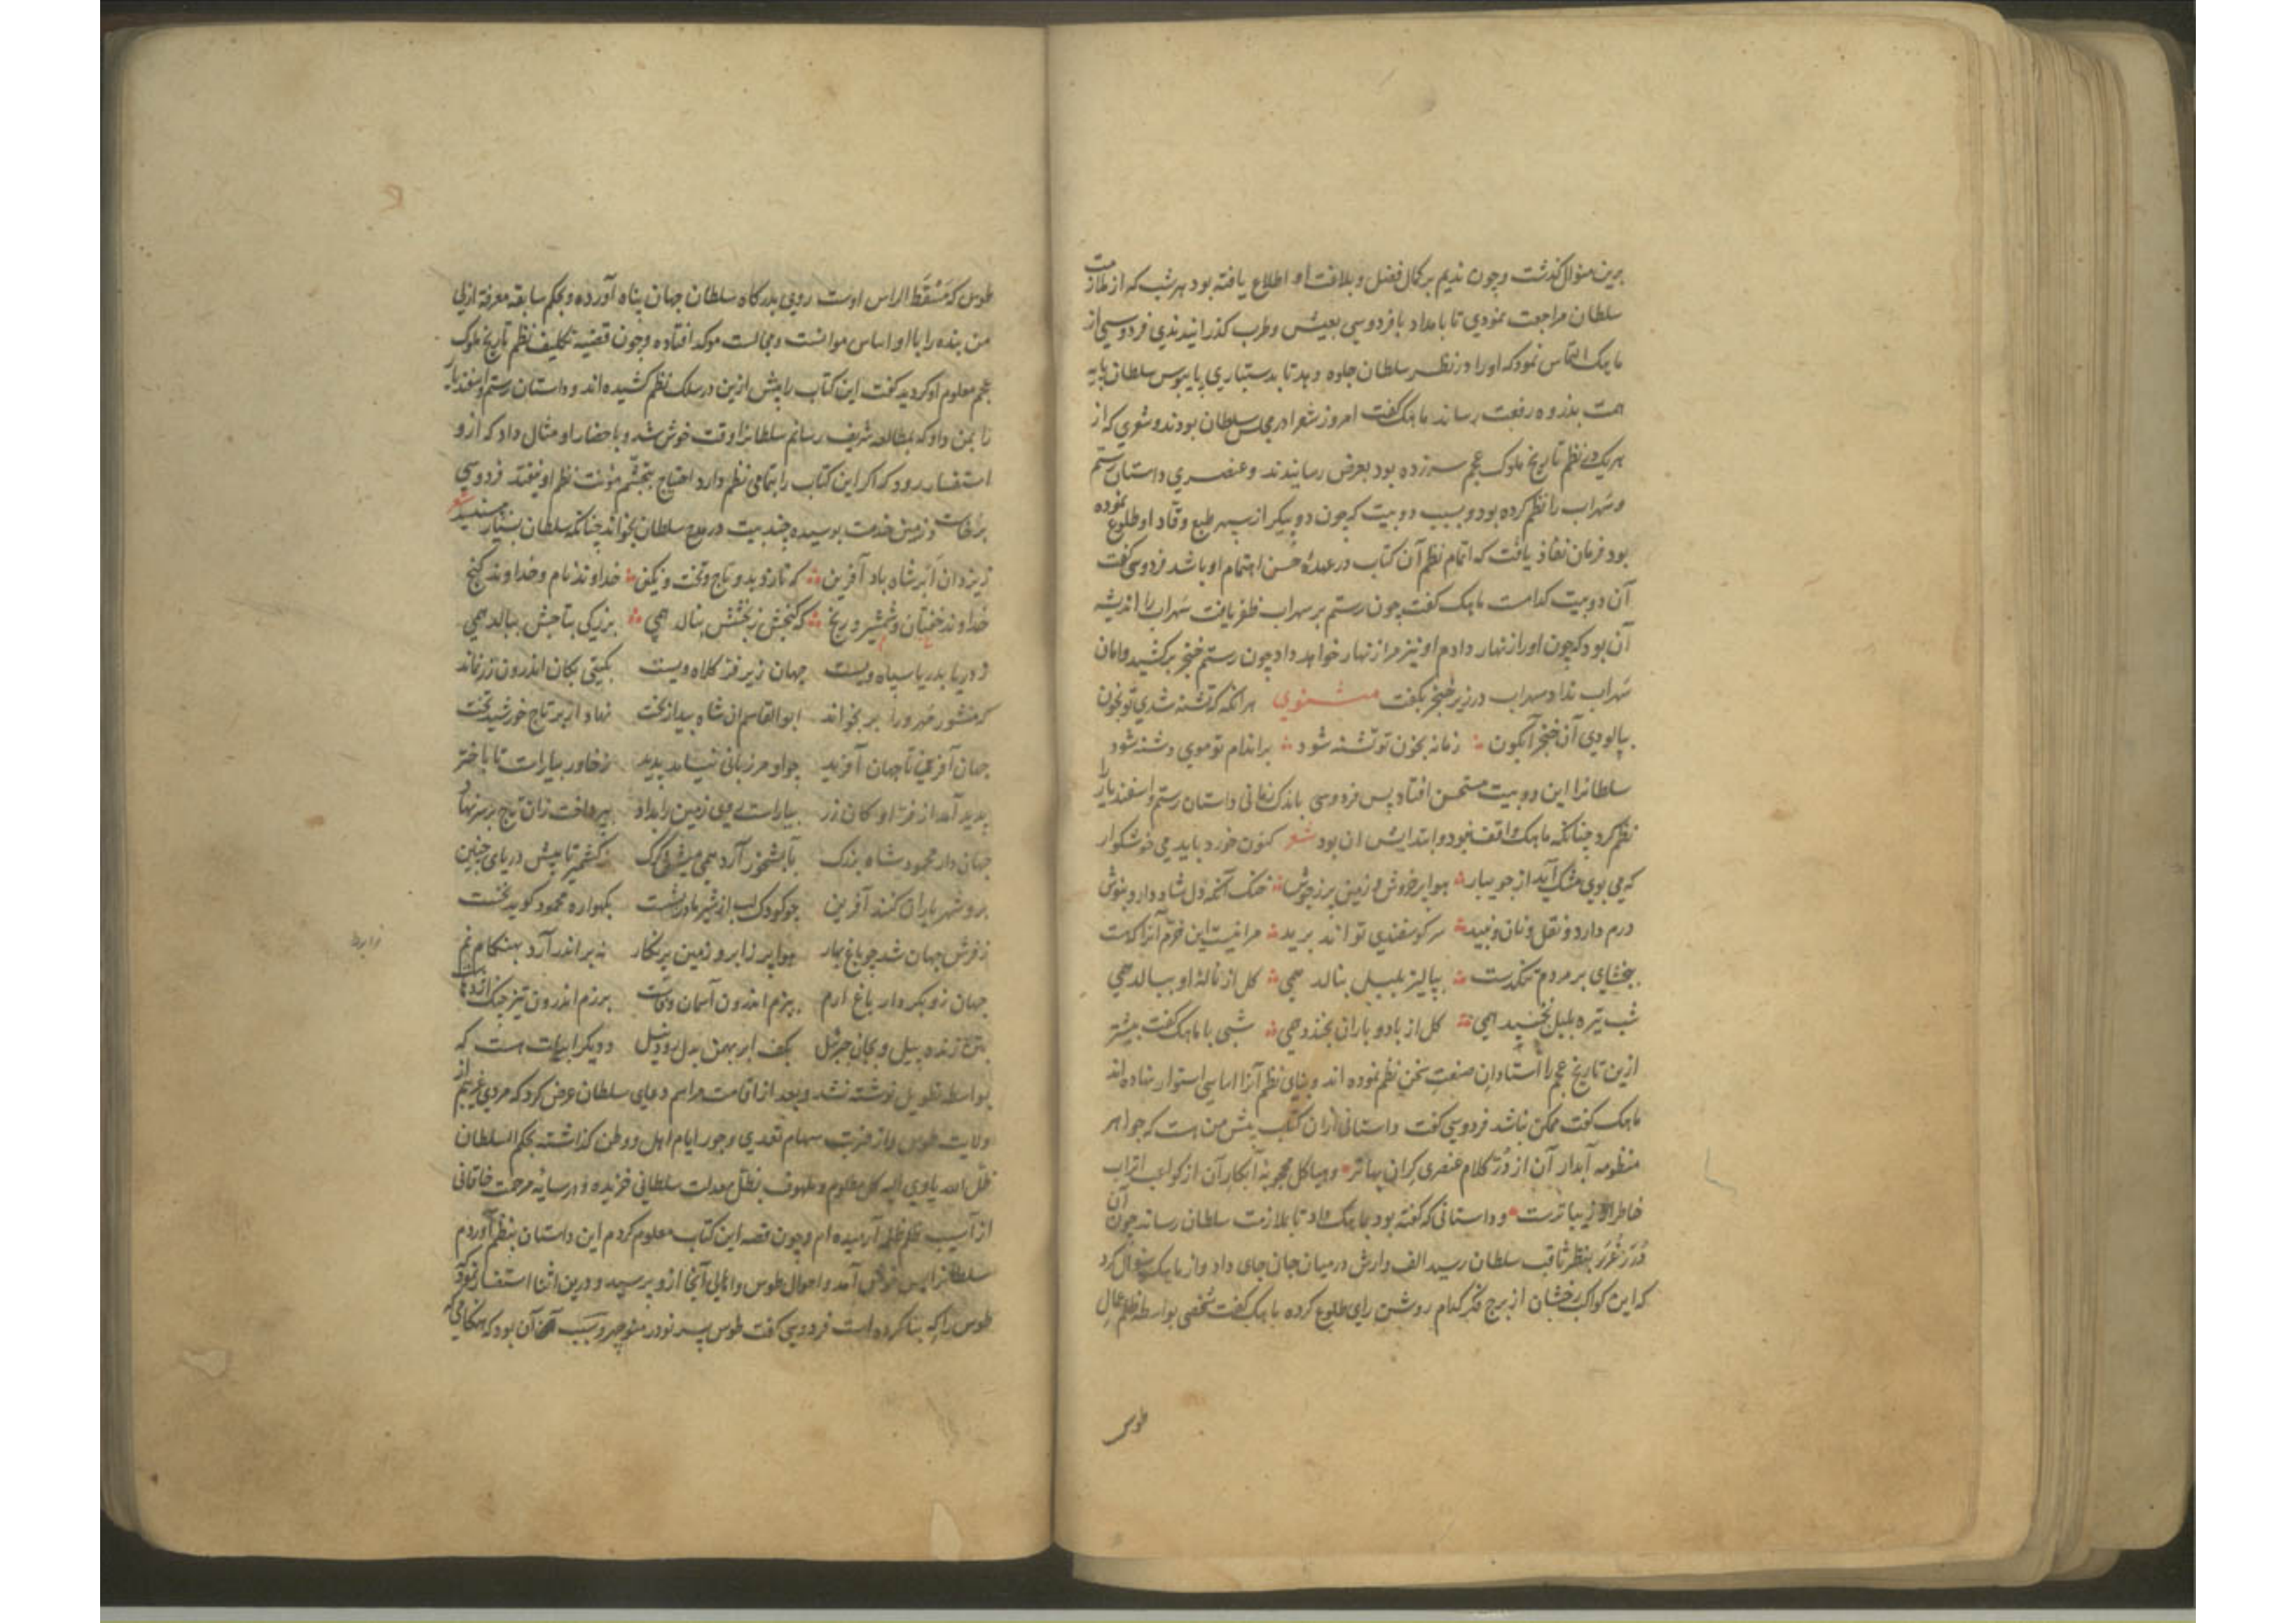 برین منوال گذشت و چون ندیم بر کمال فضل و بلاغت او اطلاع یافته بود هر شب که از ملازمت
سلطان مراجعت نمودی تا بامداد با فردوسی بعیش و طرب کذرانیدندی فردوسی از
ماهک التماس نمود که او را در نظر سلطان جلوه دهد تا بدستیاری پایبوس سلطان پایه
همت بذروه رفعت رساند ماهک کفت امروز شعرا در مجلس سلطان بودند و شعری که از
هر یک در نظم تاریخ ملوک عجم سر زده بود بعرض رسانیدند و عنصری داستان رستم
و سهراب را نظم کرده بود و بسبب دو بیت که چون دو پیکر از سپهر طبع وقاد او طلوع نموده
بود فرمان نفاذ یافت که اتمام نظم آن کتاب در عهدهٔ حسن اهتمام او باشد فردوسی کفت
آن دو بیت کدامست ماهک کفت چون رستم بر سهراب ظفر یافت سهراب را اندیشه
آن بود که چون او را زنهار دادم او نیز مرا زنهار خواهد داد چون رستم خنجر برکشید و امان
سهراب نداد سهراب در زیر خنجر بکفت مثنوی هر آنکه که تشنه شدی تو بخون
بیالودی آن خنجر آبکون زمانه بخون تو تشنه شود بر اندام تو موی دشنه شود
سلطانرا این دو بیت مستحسن افتاد پس فردوسی باندک زمانی داستان رستم و اسفندیار را
نظم کرد چنانکه ماهک واقف نبود و ابتدایش ان بود شعر کنون خورد باید می خوشکوار
که می بوی مشک آید از جویبار هوا پر خروش و زمین پر ز جوش خنک آنکه دل شاد دارد بنوش
درم دارد و نقل و نان و نبید سر کوسفندی تواند برید مرا نیست این خرم آنرا که هست
ببخشای بر مردم تنکدست بپالیز بلبل بنالد همی کل از نالهٔ او ببالد همی
شب تیره بلبل نخسبد همی کل از باد و باران بخندد همی شبی با ماهک کفت پیشتر
ازین تاریخ عجم را استادان صنعت سخن نظم نموده اند و بنای نظم آنرا اساسی استوار نهاده اند
ماهک کفت ممکن نباشد فردوسی کفت داستانی ازان کتاب پیش من است که جواهر
منظومه آبدار آن از دُرّ کلام عنصری کران بهاتر و هیاکل محجوبهٔ ابکار آن از کواعب اتراب
خاطر او زیباترست و داستانی که کفته بود بماهک داد تا بملازمت سلطان رساند چون آن
دُرَر غُرَر بنظر ثاقب سلطان رسید الف وارش در میان جان جای داد و از ماهک سؤال کرد
که این کواکب رخشان از برج فکر کدام روشن رای طلوع کرده ماهک کفت شخصی بواسطه ظلم عمال
طوس
طوس که مسقط الراس اوست روی بدرکاه سلطان جهان پناه آورده و بحکم سابقه معرفة ازلی
من بنده را با او اساس موانست و مجالست موکد افتاده و چون قضیه تکلیف نظم تاریخ ملوک
عجم معلوم او کردید کفت این کتاب را پیش ازین در سلک نظم کشیده اند و داستان رستم و اسفندیار
را بمن داد که بمطالعه شریف رسانم سلطانرا وقت خوش شد و باحضار او مثال داد که ازو
استفسار رود که اکر این کتاب را بتمامی نظم دارد احتیاج بتجشم مؤنت نظم او نیفتد فردوسی
برخاست و زمین خدمت بوسیده چند بیت در مدح سلطان بخواند چنانکه سلطان بسیار پسندید شعر
ز یزدان ابر شاه باد آفرین که نازد بدو تاج و تخت و نکین خداوند نام و خداوند کنج
خداوند خفتان و شمشیر و رنج که کنجش ز بخشش بنالد همی بزرکی بتاجش ببالد همی
ز دریا بدریا سپاه ویست جهان زیر فر کلاه ویست بکیتی بکان اندرون زر نماند
که منشور مهر ورا بر نخواند ابوالقاسم ان شاه بیدار بخت نهاد از بر تاج خورشید تخت
جهان آفرین تا جهان آفرید چو او مرزبانی نیامد پدید ز خاور بیاراست تا باختر
پدید آمد از فر او کان زر بیاراست روی زمین را بداد بپرداخت زان تاج بر سر نهاد
جهان دار محمود شاه بزرک بآبشخور آرد همی میش و کرک ز کشمیر تا پیش دریای چین
برو شهریاران کنند آفرین چو کودک لب از شیر مادر بشست بکهواره محمود کوید نخست
ز فرش جهان شد چو باغ بهار هوا پر ز ابر و زمین پر نکار ز ابر اندر آرد بهنکام نم
جهان زو بکردار باغ ارم ببزم اندرون آسمان وفاست برزم اندرون تیز چنک اژدهاست
بتن زنده پیل و بجان جبرئیل بکف ابر بهمن بدل رود نیل و دیکر ابیات هست که
بواسطه تطویل نوشته نشد و بعد از اقامت مراسم دعای سلطان عرض کرد که مردی غریبم از
ولایت طوس و از ضربت سهام تعدی و جور ایام اهل و وطن کذاشته بحکم السلطان
ظل الله یاوی الیه کل مظلوم و ملهوف بظل معدلت سلطانی خزیده و در سایهٔ مرحمت خاقانی
از آسیب ظلم آرمیده ام و چون قصه این کتاب معلوم کردم این داستان بنظم آوردم
سلطانرا بس خوش آمد و احوال طوس و اهالی آنجا ازو پرسید و درین اثنا استفسار نمود که
طوس را که بنا کرده است فردوسی کفت طوس پسر نوذر منوچهر و سبب آن بود که هنکامی که